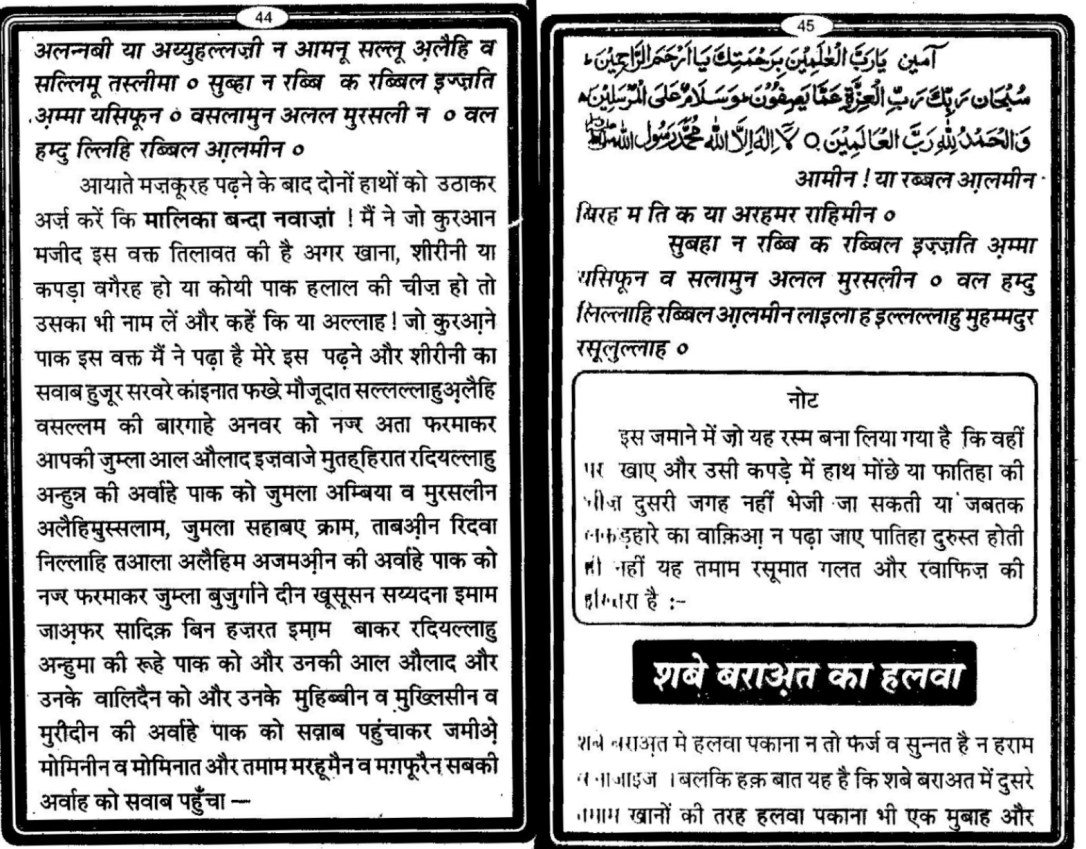 44
अलन्नबी या अय्युहल्लज़ी न आमनू सल्लू अ़लैहि व
सल्लिमू तस्लीमा ० सुब्हा न रब्बि क रब्बिल इज्ज़ति
अ़म्मा यसिफून ० वसलामुन अलल मुरसली न ० वल
हम्दु ल्लिहि रब्बिल आ़लमीन ०
आयाते मज़कूरह पढ़ने के बाद दोनों हाथों को उठाकर
अर्ज़ करें कि मालिका बन्दा नवाज़ां ! मैं ने जो कुरआन
मजीद इस वक्त तिलावत की है अगर खाना, शीरीनी या
कपड़ा वगैरह हो या कोयी पाक हलाल की चीज़ हो तो
उसका भी नाम लें और कहें कि या अल्लाह ! जो कुरआ़ने
पाक इस वक्त मैं ने पढ़ा है मेरे इस पढ़ने और शीरीनी का
सवाब हुजूर सरवरे कांइनात फखे़ मौजूदात सल्लल्लाहुअ़लैहि
वसल्लम की बारगाहे अनवर को नज्र अता फरमाकर
आपकी जुम्ला आल औलाद इज़वाजे मुतह्हिरात रदियल्लाहु
अन्हुन्न की अर्वाहे पाक को जुमला अम्बिया व मुरसलीन
अलैहिमुस्सलाम, जुमला सहाबए क्राम, ताबअ़ीन रिदवा
निल्लाहि तआला अलैहिम अजमअ़ीन की अर्वाहे पाक को
नज्र फरमाकर जुम्ला बुजुर्गाने दीन खूसूसन सय्यदना इमाम
जाअ़फर सादिक़ बिन हज़रत इमा़म बाकर रदियल्लाहु
अन्हुमा की रूहे पाक को और उनकी आल औलाद और
उनके वालिदैन को और उनके मुहिब्बीन व मुख्लिसीन व
मुरीदीन की अर्वाहे पाक को सव़ाब पहुंचाकर जमीअ़े
मोमिनीन व मोमिनात और तमाम मरहूमैन व मग़फूरैन सबकी
अर्वाह को सवाब पहुँचा —
45
آمین یَارَبَّ الْعٰلَمِیْنَ بِرَحْمَتِكَ یَا اَرْحَمَ الرَّاحِمِیْنَ۔
سُبْحَانَ رَبِّكَ رَبِّ الْعِزَّةِ عَمَّا یَصِفُوْنَ۔ وَسَلَامٌ عَلَی الْمُرْسَلِیْنَ۔
وَالْحَمْدُ لِلّٰهِ رَبِّ الْعَالَمِیْنَ ○ لَا اِلٰهَ اِلَّا اللّٰهُ مُحَمَّدٌ رَّسُوْلُ اللّٰهِ ﷺ
आमीन ! या रब्बल आ़लमीन
बिरह म ति क या अरहमर राहिमीन ०
सुबहा न रब्बि क रब्बिल इज़्ज़ति अ़म्मा
यसिफून व सलामुन अलल मुरसलीन ० वल हम्दु
लिल्लाहि रब्बिल आ़लमीन लाइला ह इल्लल्लाहु मुहम्मदुर
रसूलुल्लाह ०
नोट
इस जमाने में जो़ यह रस्म बना लिया गया है कि वहीं
पर खाए और उसी कपड़े में हाथ मोंछे या फातिहा की
चीज़ दुसरी जगह नहीं भेजी जा सकती या जबतक
लकड़हारे का वाक़िआ़ न पढ़ा जाए पातिहा दुरुस्त होती
ही नहीं यह तमाम रसूमात गलत और रवाफिज़ की
है :-
शबे बराअ़त का हलवा
शबे बराअ़त मे हलवा पकाना न तो फर्ज व सुन्नत है न हराम
व नाजाइज । बलकि हक़ बात यह है कि शबे बराअत में दुसरे
तमाम खानों की तरह हलवा पकाना भी एक मुबाह और